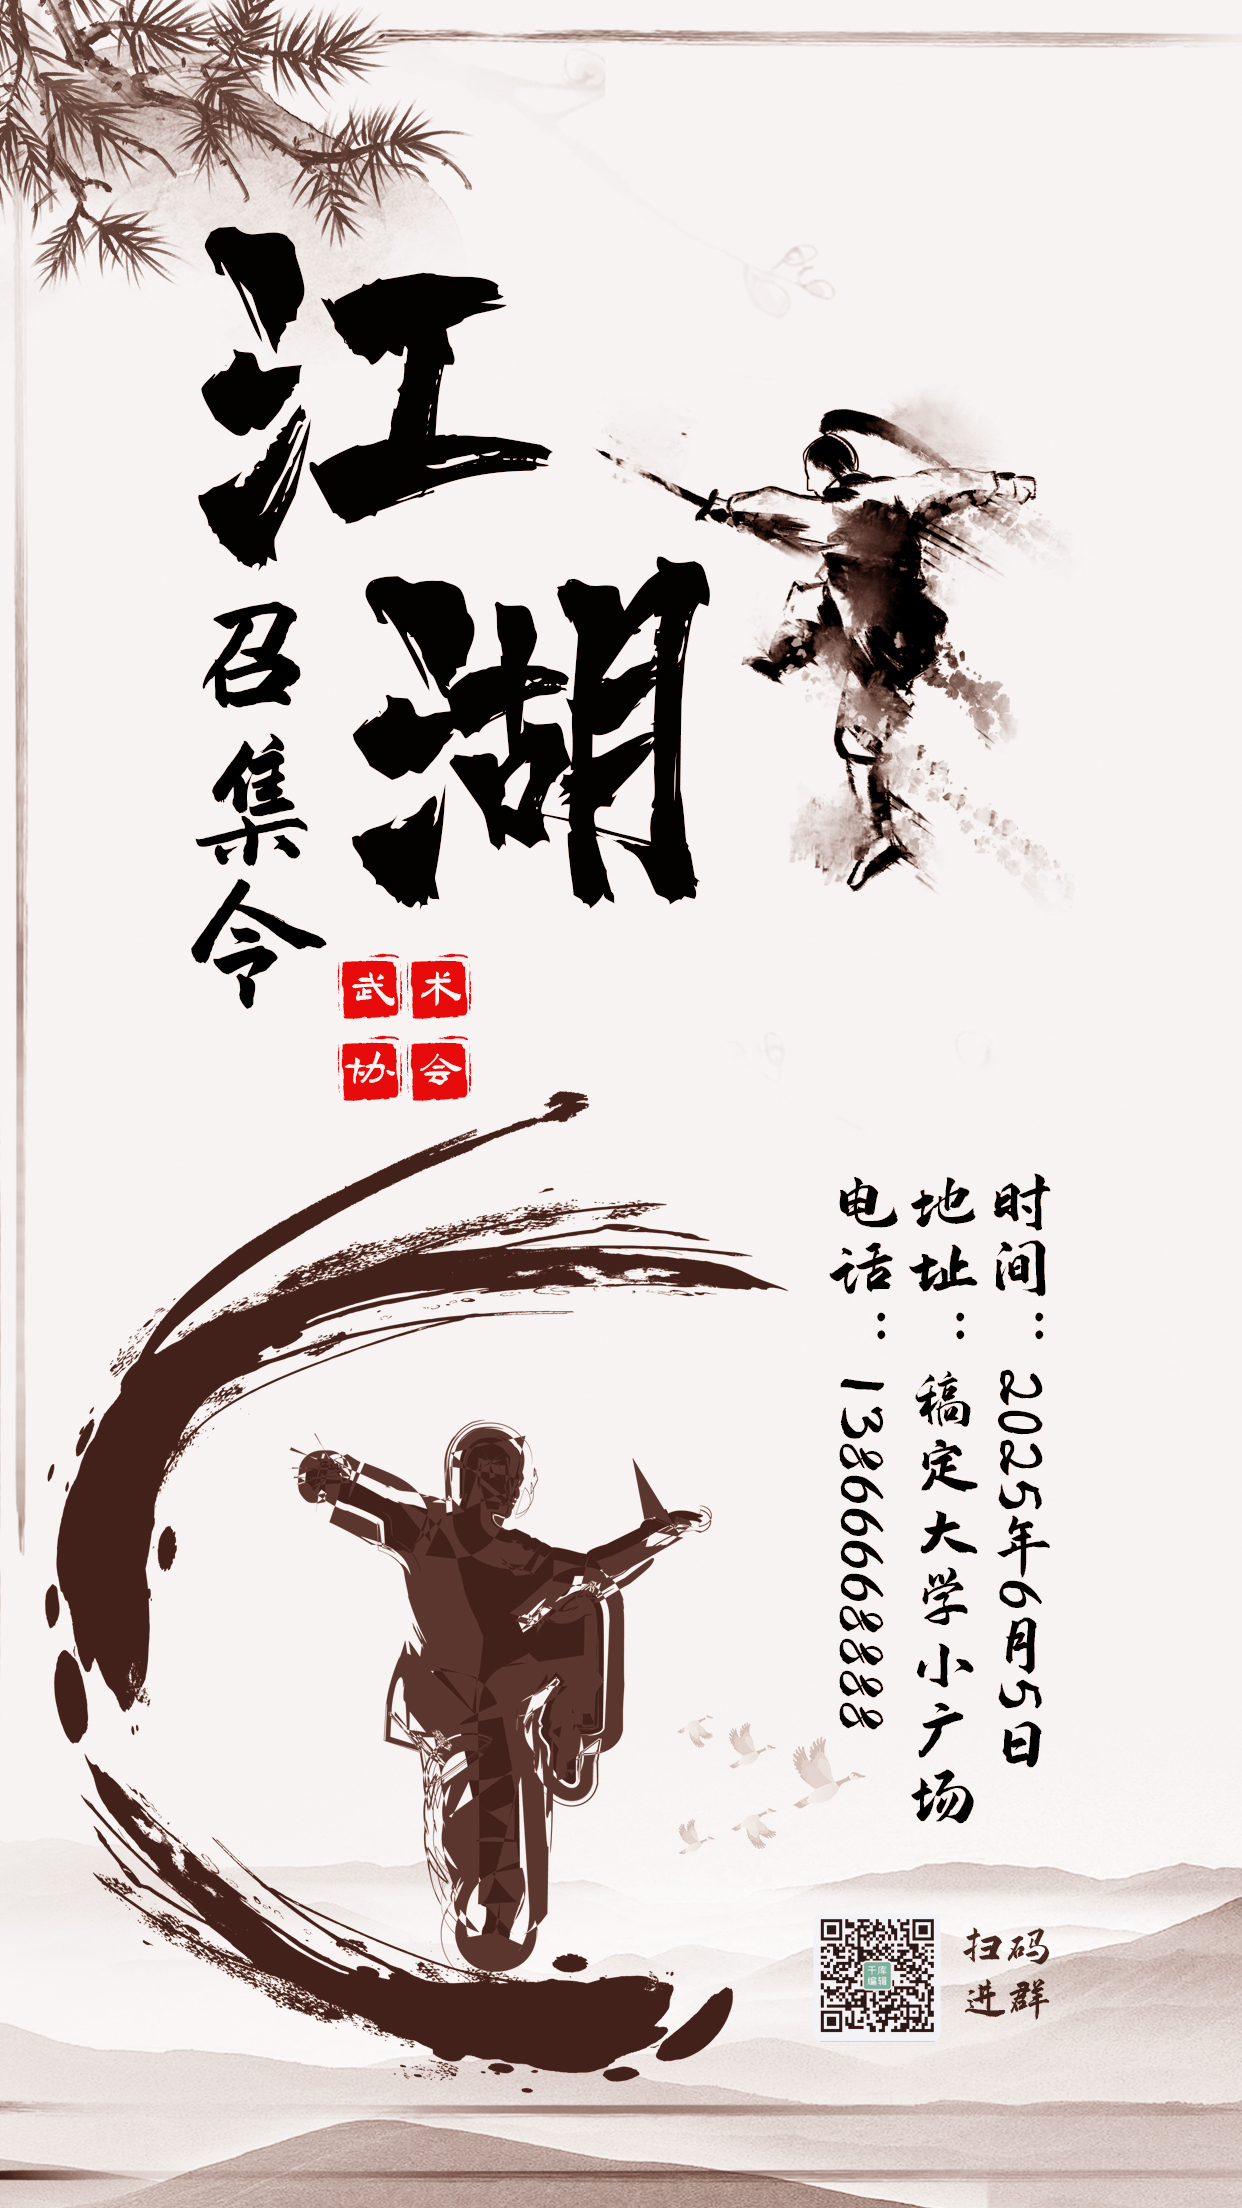 江湖
召集令
武术
协会
时间：2025年6月5日
地址：稿定大学小广场
电话：13866668888
扫码
进群
千库
编辑